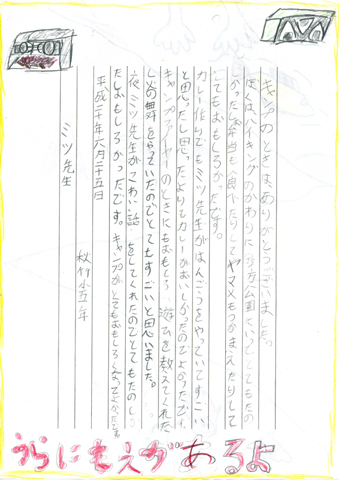 キャンプのときは、ありがとうございました。
ぼくは、ハイキングのかわりに 地方公園にいってとてもたの
しかったしお弁当も食べたりしてヤマメもつかまえたりして
とてもおもしろかったです。
カレー作りでもミツ先生がはんごうをやっていてすごい
と思ったし思ったよりもカレーがおいしかったのでよかったです。
キャンプファイヤーのときにもおもしろい遊びを教えてくれた
し火の舞をやっていたのでとてもすごいと思いました。
夜、ミツ先生がこわい話をしてくれたのでとてもたのし
おもしろかったです。キャンプがとてもおもしろくなってよかったです
平成二十年六月二十五日
秋竹小五年
ミツ先生
うらにもえがあるよ